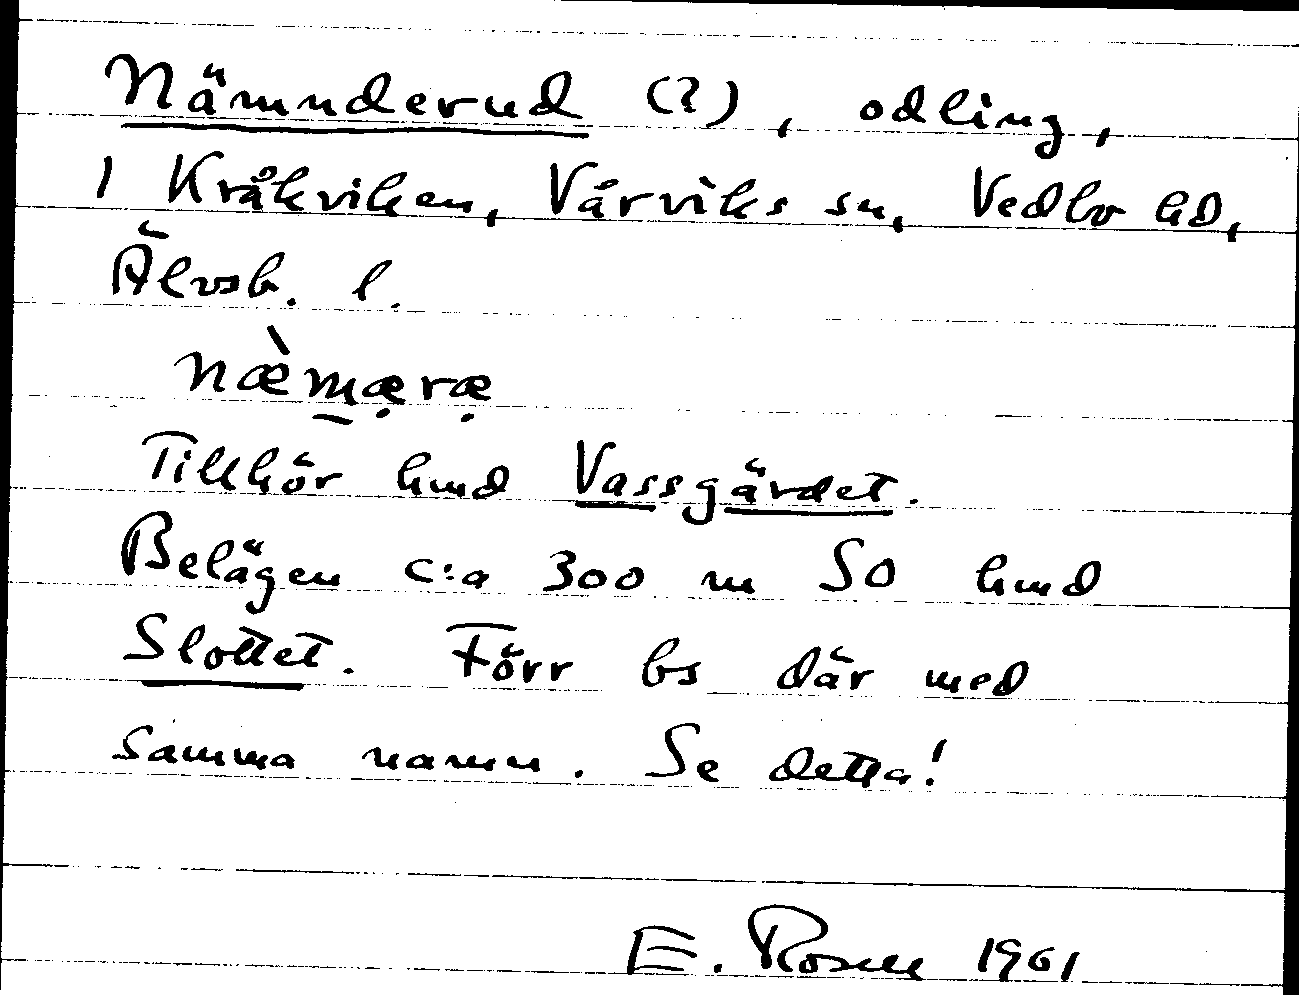 Nämnderud (?), odling,
1 Kråkviken, Vårviks sn, Vedbo hd,
Älvsb. l.
næ̀m̠æ̣ræ̣
Tillhör hmd Vassgärdet.
Belägen c:a 300 m SO hmd
Slottet. Förr bs där med
samma namn. Se detta!
E. Rosell 1961